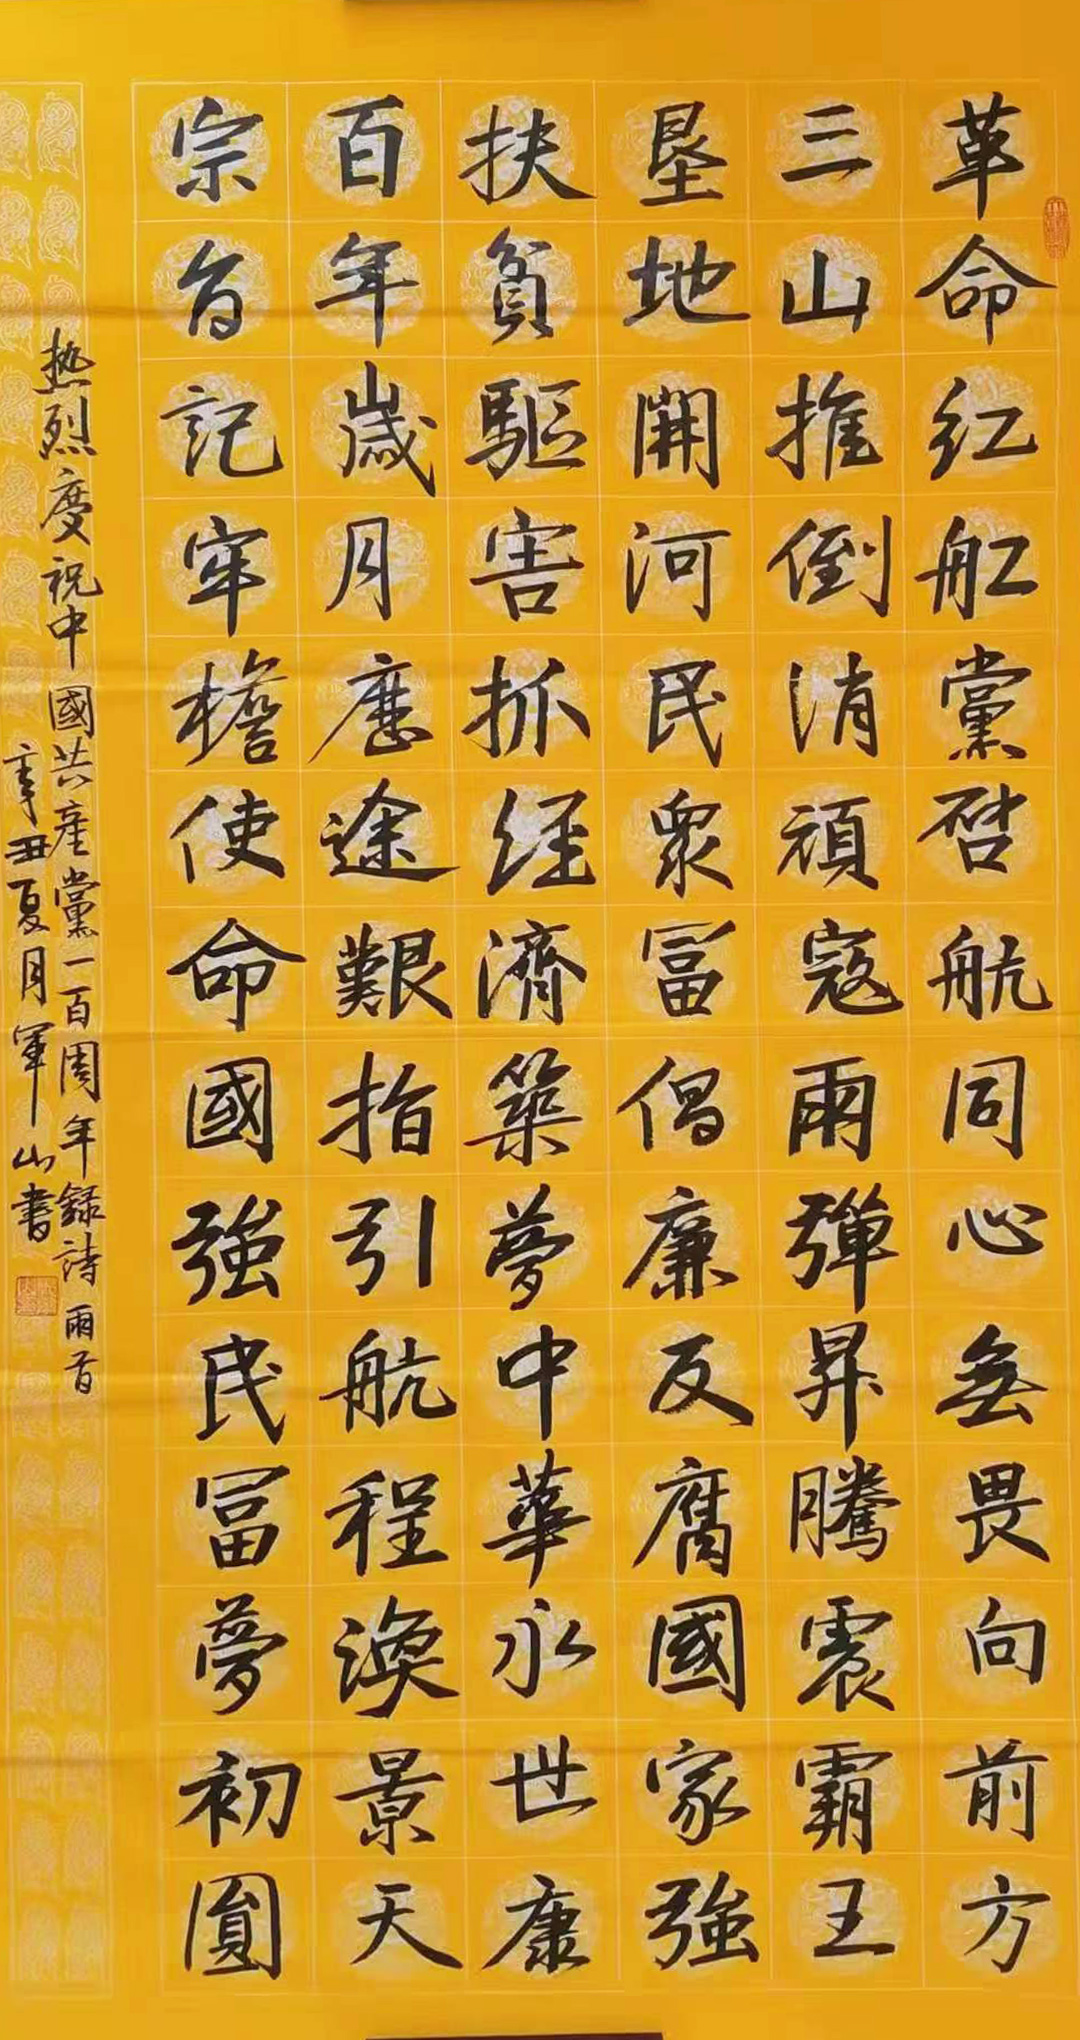 革命红舡黨啓航同心無畏向前方
三山推倒消頑寇兩彈昇騰震霸王
墾地開河民衆富倡廉反腐國家強
扶貧驅害抓經濟築夢中華永世康
百年歲月歷途艱指引航程渙景天
宗旨記牢檐使命國強民富夢初圓
热烈慶祝中國共產黨一百周年錄詩兩首
辛丑夏月軍山書